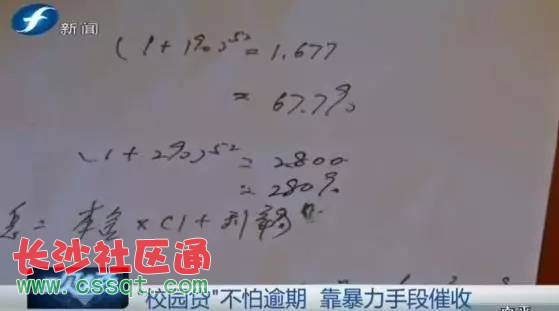 新闻
(1+1%)⁵²=1.677
≈ 67.7%
(1+2%)⁵²=2.800
=280%
息=本金×(1+利率)ⁿ
长沙社区通
www.cssqt.com
"校园贷"不怕逾期 靠暴力手段催收